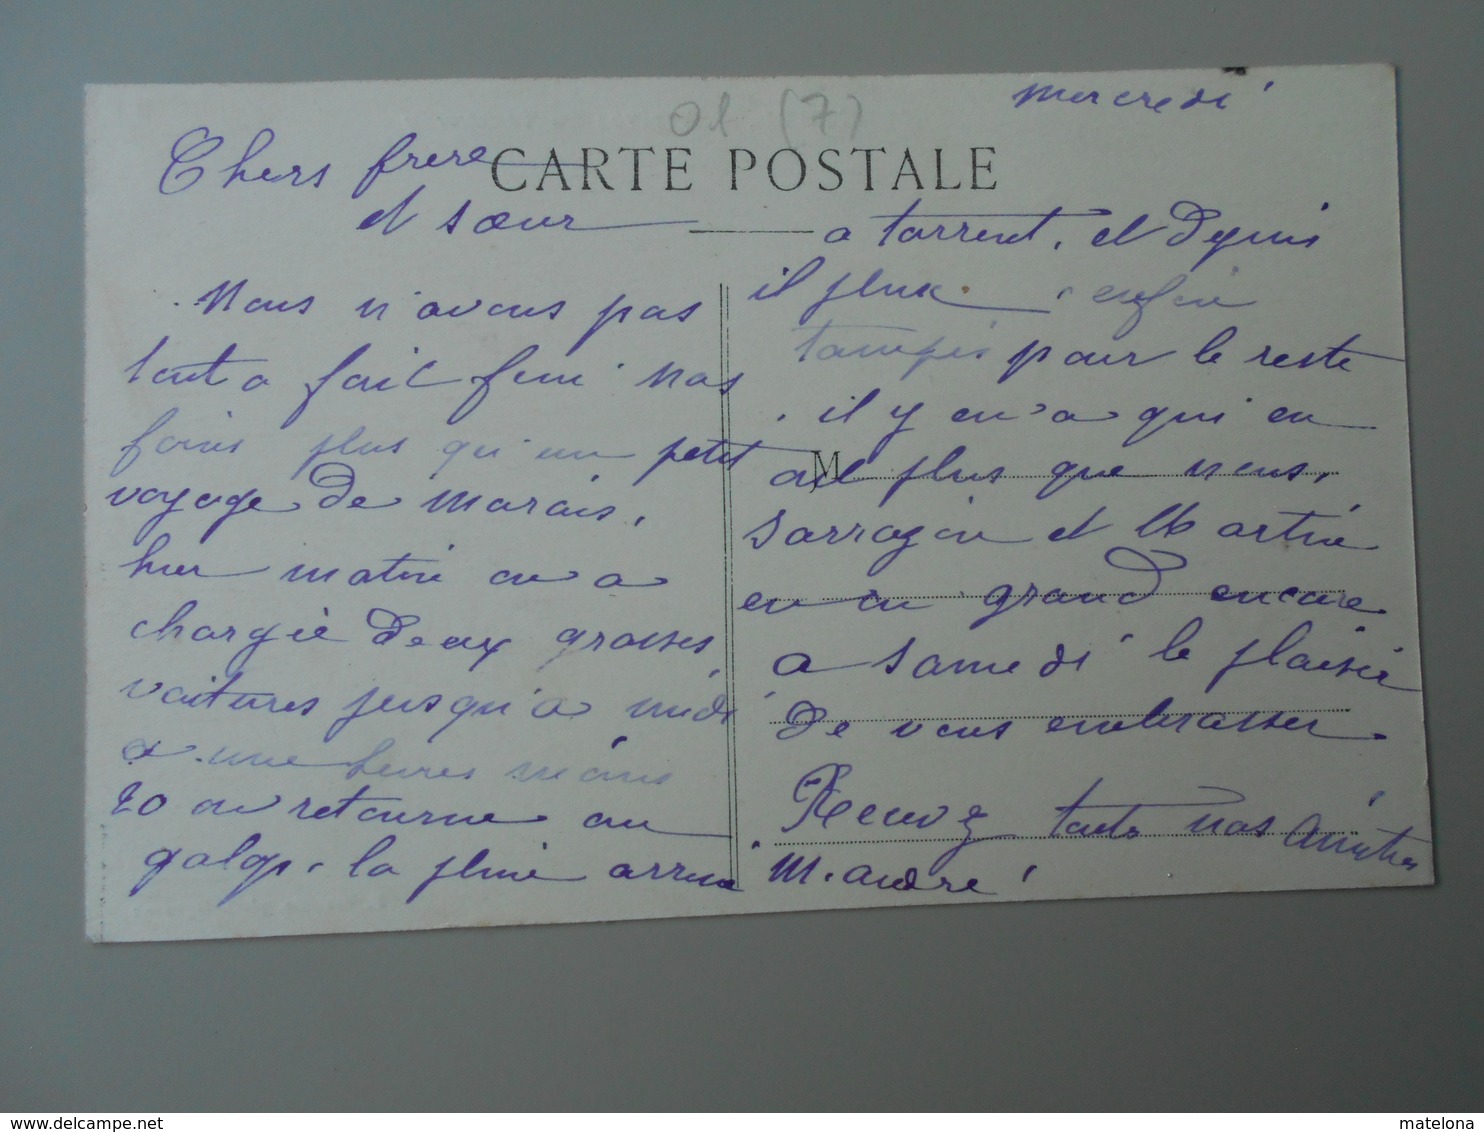 mercredi
01 (7)
Chers frere
CARTE POSTALE
et sœur
Nous n'avons pas
tout a fait fini nos
foins plus qu'un petit
voyage de marais,
hier matin on a
chargée deux grosses
voitures jusqu'a midi
a une heures moins
20 on retourne au
galop. la pluie arrive
a torrent, et depuis
il pleux. enfin
tampis pour le reste
il y en a qui en
M
ont plus que nous.
Sarrazin et Martin
en on grand encore
a samedi le plaisir
de vous embrasser
Recevez touts nos Amities
M. andré
matelona
www.delcampe.net